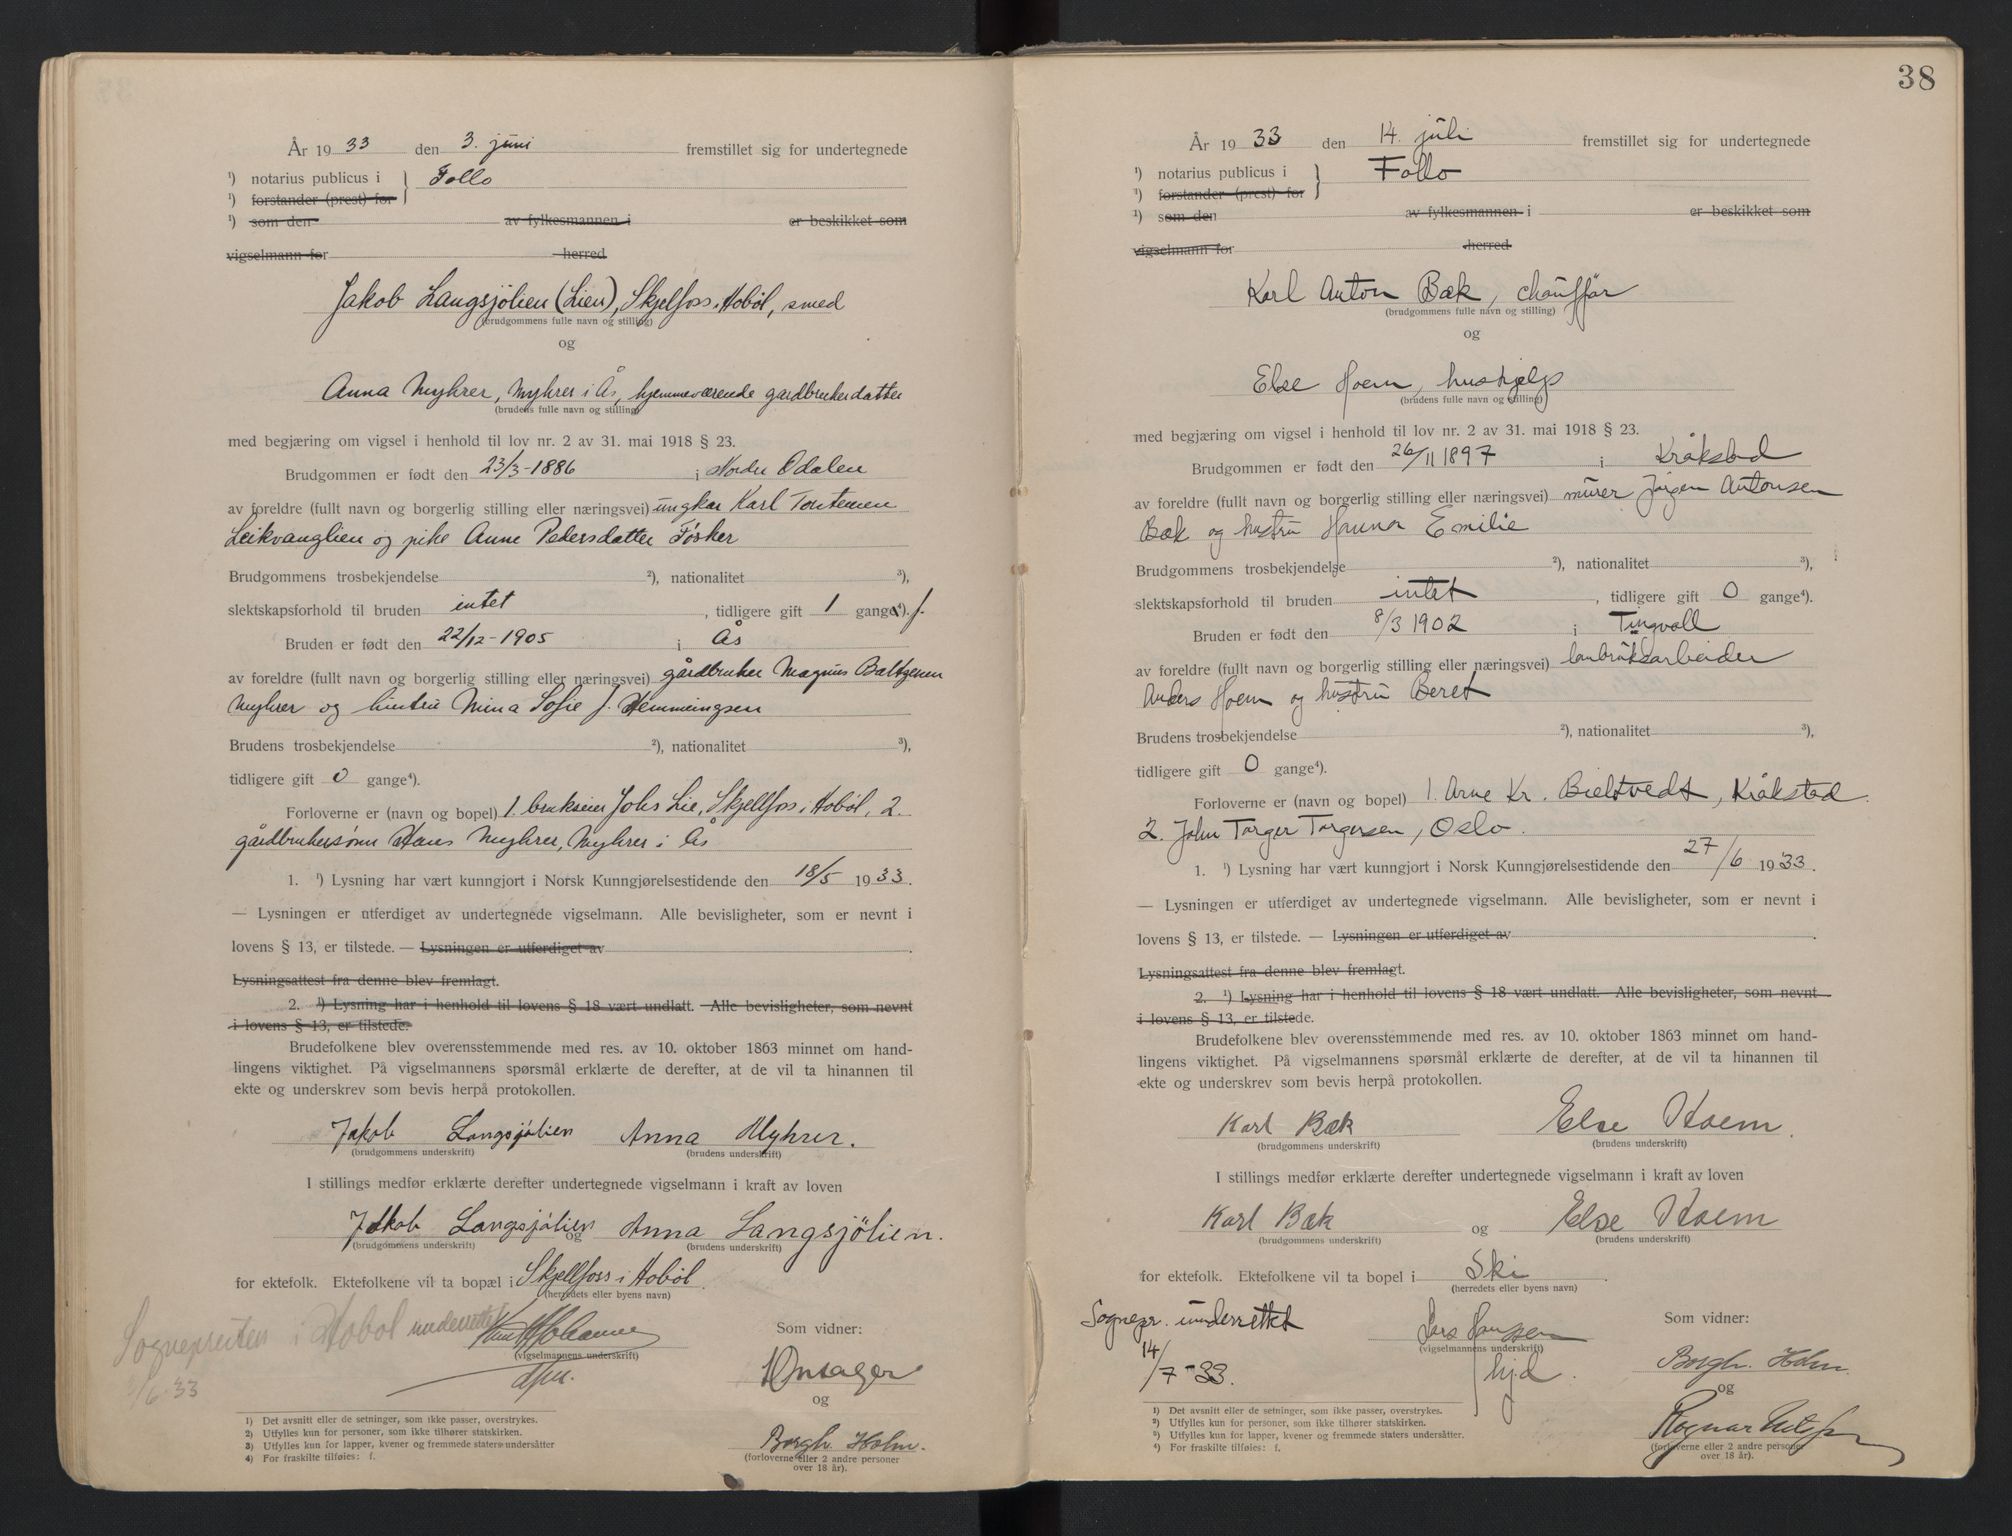 År 1933 den 3. juni fremstillet sig for undertegnede
¹) notarius publicus i } Follo
¹) forstander (prest) for
¹) som den av fylkesmannen i er beskikket som
vigselmann for herred
Jakob Langsjölien (Lien), Skjelfoss i Hobøl, smed
(brudgommens fulle navn og stilling)
og
Anna Myhrer, Myhrer i Ås, hjemmeværende gardbrukerdatter
(brudens fulle navn og stilling)
med begjæring om vigsel i henhold til lov nr. 2 av 31. mai 1918 § 23.
Brudgommen er født den 23/3-1886 i Nordre Odalen
av foreldre (fullt navn og borgerlig stilling eller næringsvei) ungkar Karl
og pike Anne Pedersdatter
Brudgommens trosbekjendelse ²), nationalitet ³),
slektskapsforhold til bruden intet, tidligere gift 1 gange⁴). f.
Bruden er født den 22/12-1905 i Ås
av foreldre (fullt navn og borgerlig stilling eller næringsvei) gårdbruker Magnus Baltzersen
Myhrer og hustru Mina Sofie J. Hemmeingsen
Brudens trosbekjendelse ²), nationalitet ³),
tidligere gift 0 gange⁴).
Forloverne er (navn og bopel) 1. brukseier Johs Lie, Skjellfoss i Hobøl, 2.
gårdbrukersønn Hans Myhrer, Myhrer i Ås
1. ¹) Lysning har vært kunngjort i Norsk Kunngjørelsestidende den 18/5 1933.
— Lysningen er utferdiget av undertegnede vigselmann. Alle bevisligheter, som er nevnt i
lovens § 13, er tilstede. — Lysningen er utferdiget av
Lysningsattest fra denne blev fremlagt.
2. ¹) Lysning har i henhold til lovens § 18 vært undlatt. Alle bevisligheter, som nevnt
i lovens § 13, er tilstede.
Brudefolkene blev overensstemmende med res. av 10. oktober 1863 minnet om hand-
lingens viktighet. På vigselmannens spørsmål erklærte de derefter, at de vil ta hinannen til
ekte og underskrev som bevis herpå protokollen.
Jakob Langsjölien Anna Myhrer.
(brudgommens underskrift) (brudens underskrift)
I stillings medfør erklærte derefter undertegnede vigselmann i kraft av loven
Jakob Langsjölien og Anna Langsjölien.
(brudgommens underskrift) (brudens underskrift)
for ektefolk. Ektefolkene vil ta bopæl i Skjellfoss i Hobøl.
(herredets eller byens navn)
Sognepresten i Hobøl underrettet
/6-33
(vigselmannens underskrift)
Som vidner:
Onsager
og
Borgh. Holm.
(forloverne eller 2 andre personer
over 18 år).
1) Det avsnitt eller de setninger, som ikke passer, overstrykes.
2) Utfylles kun for personer, som ikke tilhører statskirken.
3) Utfylles kun for lapper, kvener og fremmede staters undersåtter
4) For fraskilte tilføies: f.
38
År 1933 den 14. juli fremstillet sig for undertegnede
¹) notarius publicus i } Follo
¹) forstander (prest) for
¹) som den av fylkesmannen i er beskikket som
vigselmann for herred
Karl Anton Bæk, chauffør
(brudgommens fulle navn og stilling)
og
Else Hoem, hushjelp
(brudens fulle navn og stilling)
med begjæring om vigsel i henhold til lov nr. 2 av 31. mai 1918 § 23.
Brudgommen er født den 26/11 1897 i Kråkstad
av foreldre (fullt navn og borgerlig stilling eller næringsvei) murer Jørgen Antonsen
Bæk og hustru Hanna Emilie
Brudgommens trosbekjendelse ²), nationalitet ³),
slektskapsforhold til bruden intet, tidligere gift 0 gange⁴).
Bruden er født den 8/3 1902 i Tingvoll
av foreldre (fullt navn og borgerlig stilling eller næringsvei) lanbruksarbeider
Anders Hoem og hustru Beret
Brudens trosbekjendelse ²), nationalitet ³),
tidligere gift 0 gange⁴).
Forloverne er (navn og bopel) 1. Arne Kr. Bieltvedt, Kråkstad.
2. John Torger Torgersen, Oslo.
1. ¹) Lysning har vært kunngjort i Norsk Kunngjørelsestidende den 27/6 1933.
— Lysningen er utferdiget av undertegnede vigselmann. Alle bevisligheter, som er nevnt i
lovens § 13, er tilstede. — Lysningen er utferdiget av
Lysningsattest fra denne blev fremlagt.
2. ¹) Lysning har i henhold til lovens § 18 vært undlatt. Alle bevisligheter, som nevnt
i lovens § 13, er tilstede.
Brudefolkene blev overensstemmende med res. av 10. oktober 1863 minnet om hand-
lingens viktighet. På vigselmannens spørsmål erklærte de derefter, at de vil ta hinannen til
ekte og underskrev som bevis herpå protokollen.
Karl Bæk Else Hoem.
(brudgommens underskrift) (brudens underskrift)
I stillings medfør erklærte derefter undertegnede vigselmann i kraft av loven
Karl Bæk og Else Hoem
(brudgommens underskrift) (brudens underskrift)
for ektefolk. Ektefolkene vil ta bopel i Ski.
(herredets eller byens navn)
Sognepr. underrettet
14/7-33.
Lars Hanssen
(vigselmannens underskrift)
hjd.
Som vidner:
Borgh. Holm.
og
Ragnar
(forloverne eller 2 andre personer
over 18 år).
¹) Det avsnitt eller de setninger, som ikke passer, overstrykes.
²) Utfylles kun for personer, som ikke tilhører statskirken.
³) Utfylles kun for lapper, kvener og fremmede staters undersåtter.
⁴) For fraskilte tilføies: f.